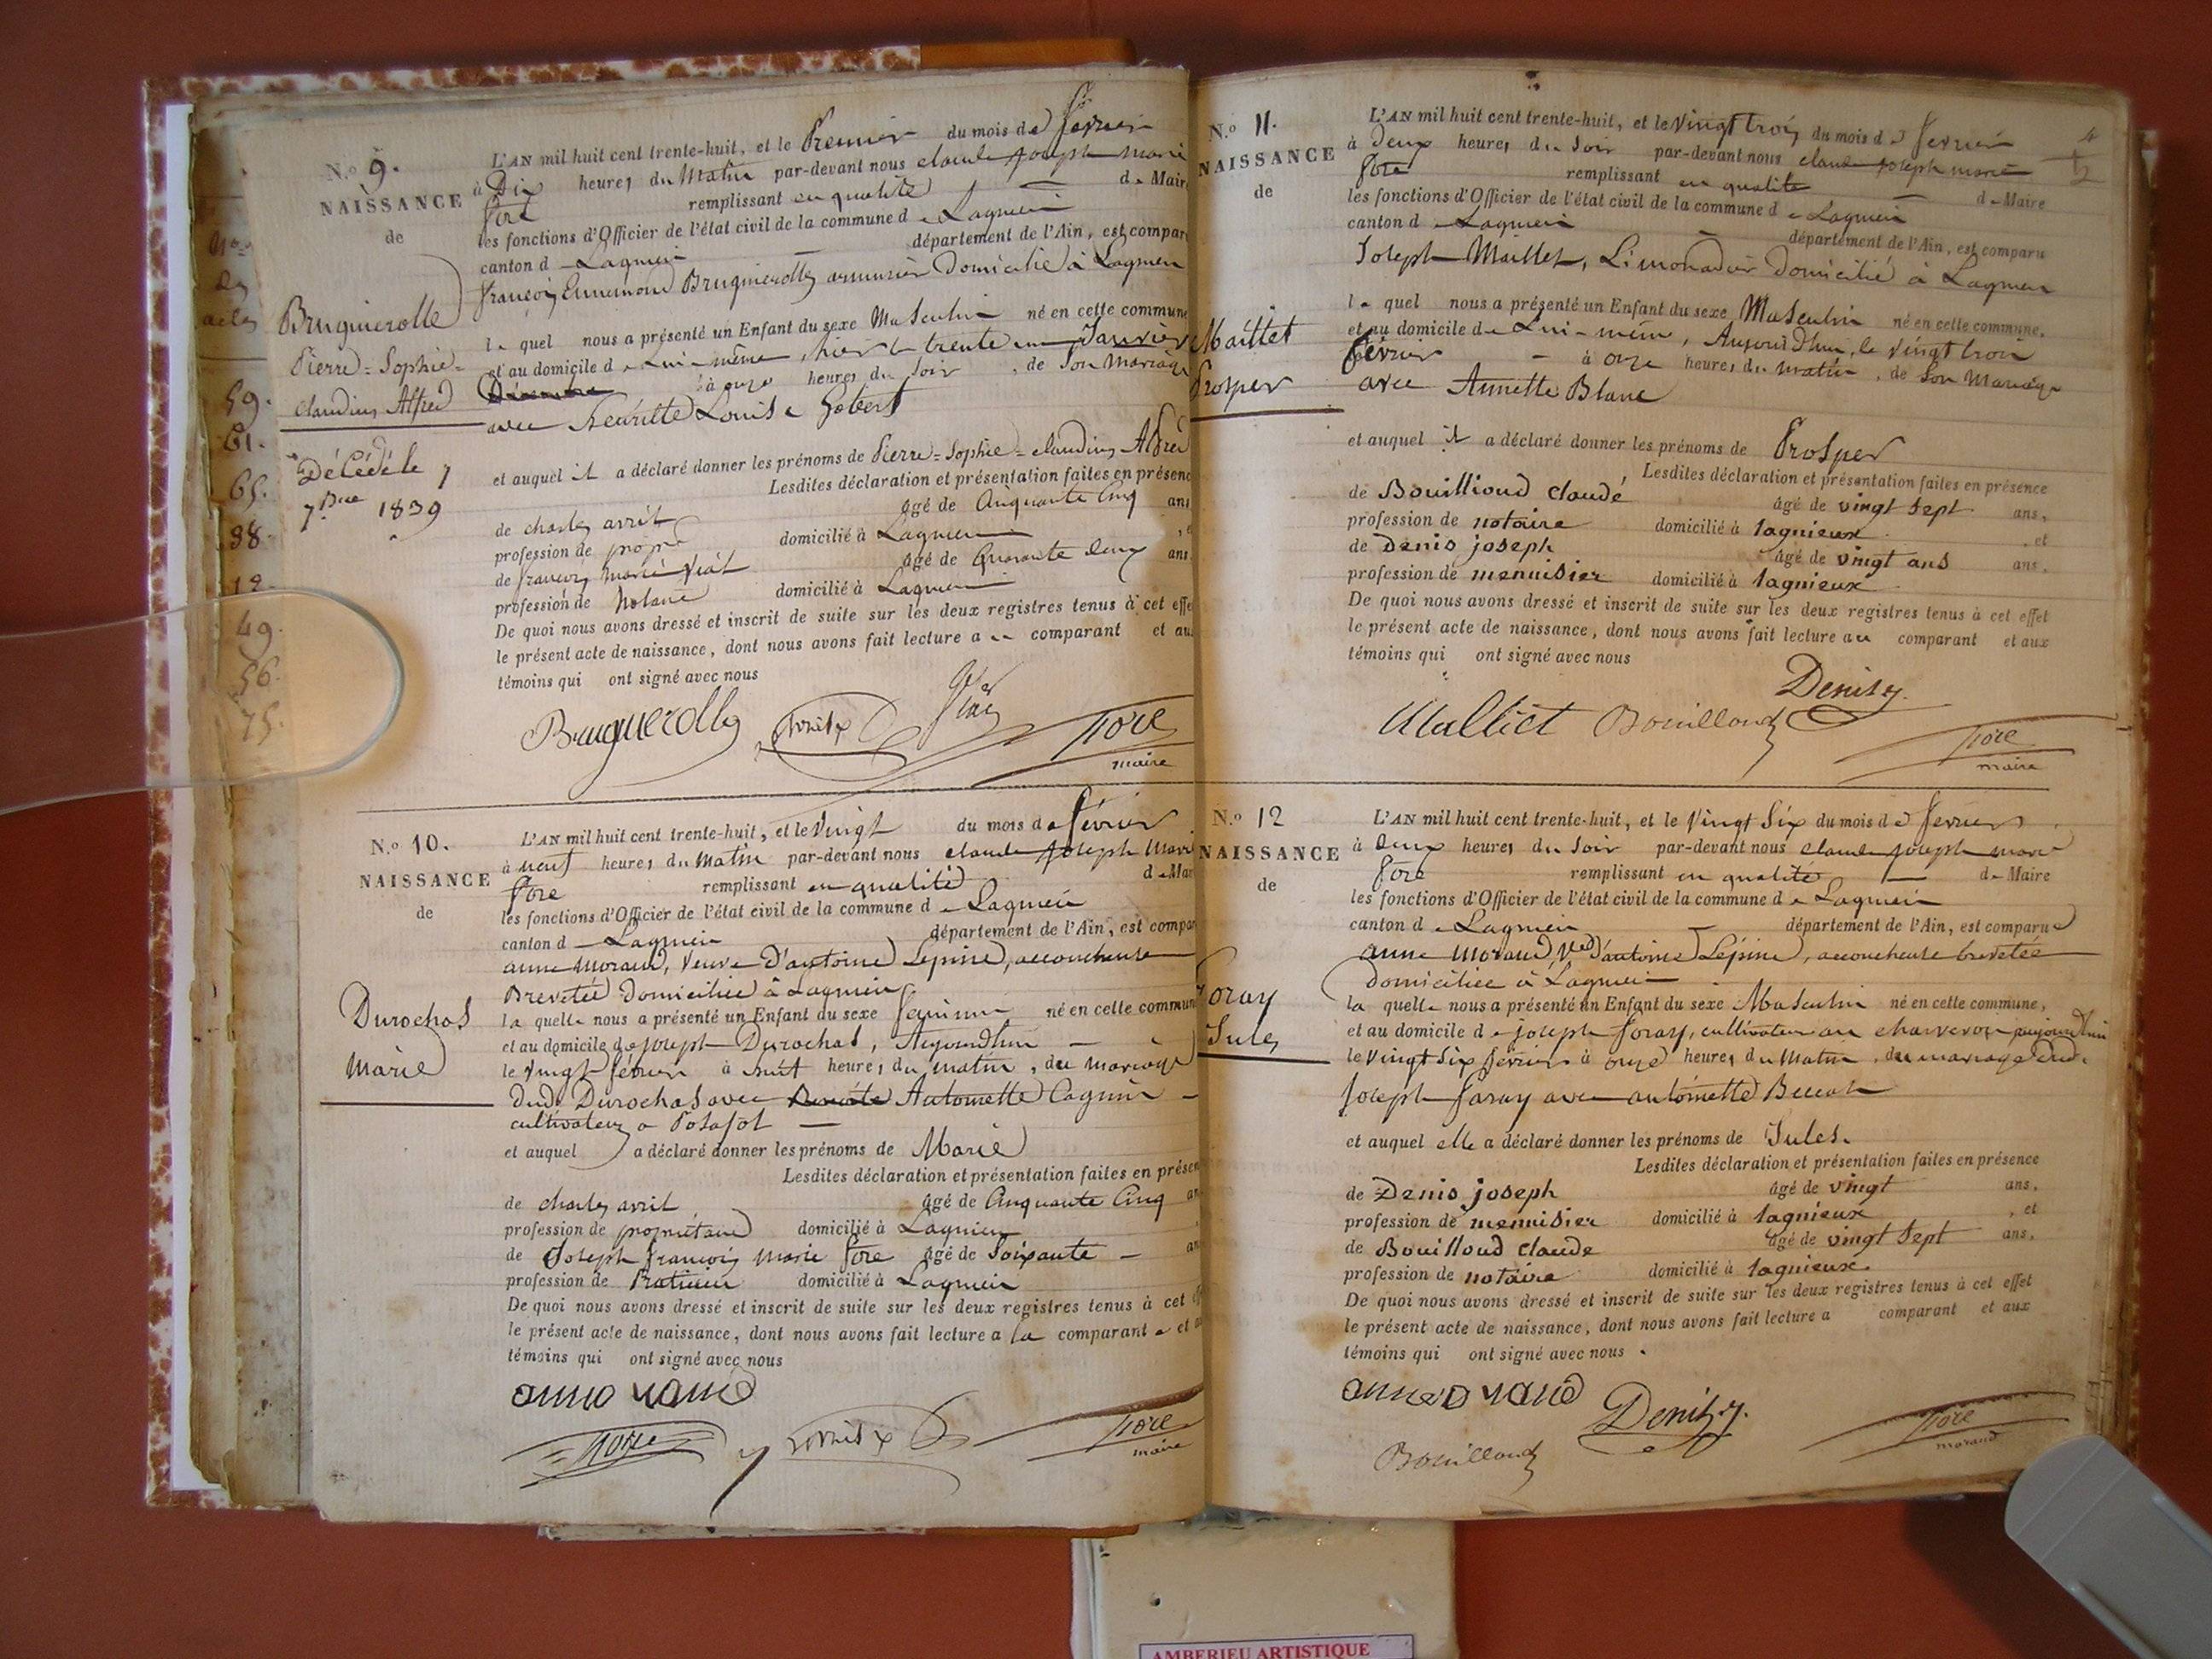 N.o 9.
NAISSANCE
de
Bruguierolle
Pierre = Sophie =
claudius Alfred
Décédé le 7
7.bre 1839
L'AN mil huit cent trente-huit, et le Premier du mois de fevrier
à Dix heures du Matin par-devant nous claude joseph marie
fore remplissant en qualité de Maire
les fonctions d'Officier de l'état civil de la commune de Lagnieu
canton de Lagnieu département de l'Ain, est compar
françois Ennemond Bruguierolles armurier Domicilié à Lagnieu
le quel nous a présenté un Enfant du sexe Masculin né en cette commune
et au domicile de Lui-même, hier le trente un Janvier
à onze heures du soir, de Son Mariage
avec Louise Gobert
et auquel il a déclaré donner les prénoms de Pierre = Sophie = claudius Alfred
Lesdites déclaration et présentation faites en présenc
de charles avrit âgé de Cinquante Cinq ans
profession de propre domicilié à Lagnieu
de françois marie Viât âgé de Quarante deux ans
profession de Notaire domicilié à Lagnieu
De quoi nous avons dressé et inscrit de suite sur les deux registres tenus à cet effe
le présent acte de naissance, dont nous avons fait lecture au comparant et au
témoins qui ont signé avec nous
Bruguerolles
fore
maire
N.o 10.
NAISSANCE
de
Durochas
Marie
L'AN mil huit cent trente-huit, et le Vingt du mois de février
à neuf heures du Matin par-devant nous claude joseph Mari
fore remplissant en qualité de Mai
les fonctions d'Officier de l'état civil de la commune de Lagnieu
canton de Lagnieu département de l'Ain, est compar
anne Moraud, Veuve D'antoine Lépine, accoucheuse
Brevetée Domiciliée à Lagnieu
la quelle nous a présenté un Enfant du sexe feminin né en cette commun
et au domicile de joseph Durochas, Aujourdhui
le Vingt fevrier à huit heures du matin, du mariage
dud. Durochas avec Antoinette Cagnin
cultivateurs a Posafol
et auquel a déclaré donner les prénoms de Marie
Lesdites déclaration et présentation faites en présen
de charles avrit âgé de Cinquante Cinq an
profession de propriétaire domicilié à Lagnieu
de Joseph françois marie fore âgé de Soixante an
profession de Praticien domicilié à Lagnieu
De quoi nous avons dressé et inscrit de suite sur les deux registres tenus à cet eff
le présent acte de naissance, dont nous avons fait lecture a la comparante et a
témoins qui ont signé avec nous
fore
maire
N.o 11.
NAISSANCE
de
Maillet
Prosper
L'AN mil huit cent trente-huit, et le Vingt trois du mois de fevrier
à Deux heures du Soir par-devant nous claude joseph marie
fore remplissant en qualité de Maire
les fonctions d'Officier de l'état civil de la commune de Lagnieu
canton de Lagnieu département de l'Ain, est comparu
Joseph Maillet, Limonadier domicilié à Lagnieu
le quel nous a présenté un Enfant du sexe Masculin né en cette commune,
et au domicile de Lui-même, Aujourdhui, le Vingt trois
février à onze heures du matin, de Son Mariage
avec Annette Blanc
et auquel il a déclaré donner les prénoms de Prosper
Lesdites déclaration et présentation faites en présence
de Bouillioud claude âgé de vingt sept ans,
profession de notaire domicilié à lagnieux, et
de Denis joseph âgé de vingt ans ans,
profession de menuisier domicilié à lagnieux
De quoi nous avons dressé et inscrit de suite sur les deux registres tenus à cet effet
le présent acte de naissance, dont nous avons fait lecture au comparant et aux
témoins qui ont signé avec nous
Denis J.
Malliet Bouilloud
fore
maire
N.o 12
NAISSANCE
de
foray
Jules
L'AN mil huit cent trente-huit, et le Vingt Six du mois de fevrier
à Deux heures du Soir par-devant nous claude joseph marie
fore remplissant en qualité de Maire
les fonctions d'Officier de l'état civil de la commune de Lagnieu
canton de Lagnieu département de l'Ain, est comparue
anne Moraud Ve d'antoine Lépine, accoucheuse brevetée
domiciliée à Lagnieu
la quelle nous a présenté un Enfant du sexe Masculin né en cette commune,
et au domicile de joseph foray, cultivateur au charveron aujourdhui
le Vingt Six fevrier à onze heures du Matin, du mariage dud.
Joseph foray avec antoinette Beccat
et auquel elle a déclaré donner les prénoms de Jules.
Lesdites déclaration et présentation faites en présence
de Denis joseph âgé de vingt ans,
profession de menuisier domicilié à lagnieux, et
de Bouilloud claude âgé de vingt sept ans,
profession de notaire domicilié à lagnieux.
De quoi nous avons dressé et inscrit de suite sur les deux registres tenus à cet effet
le présent acte de naissance, dont nous avons fait lecture a comparant et aux
témoins qui ont signé avec nous.
Denis J.
Bouilloud
fore
59.
61.
65.
38.
12.
49.
56.
75.
AMBERIEU ARTISTIQUE